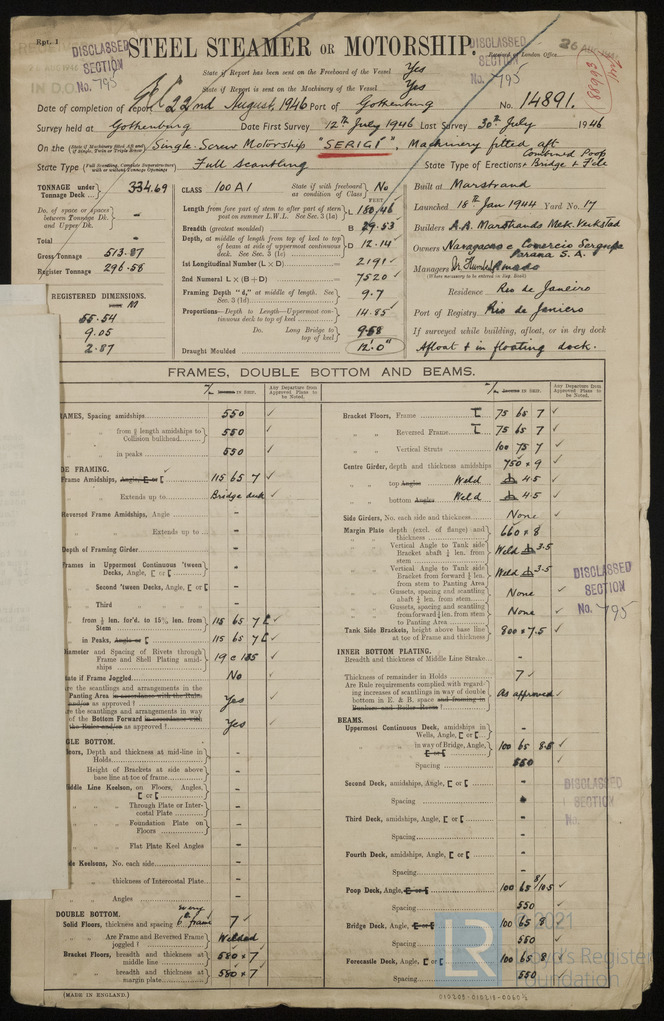 Rpt. 1
DISCLASSED SECTION No. 795
STEEL STEAMER OR MOTORSHIP.
DISCLASSED SECTION No. 795
26 AUG
State if Report has been sent on the Freeboard of the Vessel Yes
State if Report is sent on the Machinery of the Vessel Yes
Date of completion of report 22nd August, 1946 Port of Gothenburg No. 14891.
Survey held at Gothenburg Date First Survey 12th July 1946 Last Survey 30th July 1946
On the Single Screw Motorship "SERIGI", Machinery fitted aft
State Type Full scantling State Type of Erections Combined Poop + Bridge + F'cle
TONNAGE under Tonnage Deck 334.69
Do. of space or spaces between Tonnage Dk. and Upper Dk.
Total
Gross Tonnage 513.87
Register Tonnage 296.58
REGISTERED DIMENSIONS.
M
55.54
9.05
2.87
CLASS 100 A1 State if with freeboard as condition of Class No
FEET
Length from fore part of stem to after part of stern post on summer L.W.L. See Sec. 3 (1a) L 180.46
Breadth (greatest moulded) B 29.53
Depth, at middle of length from top of keel to top of beam at side of uppermost continuous deck. See Sec. 3 (1c) D 12.14
1st Longitudinal Number (L × D) 2191
2nd Numeral L × (B + D) 7520
Framing Depth "d," at middle of length. See Sec. 3 (1d) 9.7
Proportions—Depth to Length—Uppermost continuous deck to top of keel 14.85
Do. Long Bridge to top of keel 9.58
Draught Moulded 12'.0"
Built at Marstrand
Launched 18th Jan 1944 Yard No. 17
Builders A.B. Marstrands Mek. Verkstad
Owners Navegacao e Comercio Sergipe Parana S.A.
Managers Dr Humberto Amado
Residence Rio de Janeiro
Port of Registry Rio de Janeiro
If surveyed while building, afloat, or in dry dock
Afloat + in floating dock.
FRAMES, DOUBLE BOTTOM AND BEAMS.
IN SHIP. Any Departure from Approved Plans to be Noted.
FRAMES, Spacing amidships 550 ✓
" " from ⅗ length amidships to Collision bulkhead 550 ✓
" " in peaks 550 ✓
SIDE FRAMING.
Frame Amidships, Angle, [ or [ 115 65 7 ✓
" " Extends up to Bridge deck ✓
Reversed Frame Amidships, Angle -
" " Extends up to -
Depth of Framing Girder -
Frames in Uppermost Continuous 'tween Decks, Angle, [ or [ -
" Second 'tween Decks, Angle, [ or [ -
" Third " " " -
" from ⅗ len. for'd. to 15% len. from Stem 115 65 7 [ ✓
" in Peaks, Angle or [ 115 65 7 [ ✓
Diameter and Spacing of Rivets through Frame and Shell Plating amidships 19 c 135 ✓
State if Frame Joggled No ✓
Are the scantlings and arrangements in the Panting Area in accordance with the Rules and/or as approved? Yes ✓
Are the scantlings and arrangements in way of the Bottom Forward in accordance with the Rules and/or as approved? Yes ✓
SINGLE BOTTOM.
Floors, Depth and thickness at mid-line in Holds -
" Height of Brackets at side above base line at toe of frame -
Middle Line Keelson, on Floors, Angles, [ or [ -
" " Through Plate or Intercostal Plate -
" " Foundation Plate on Floors -
" " Flat Plate Keel Angles -
Side Keelsons, No. each side -
" " thickness of Intercostal Plate -
" " Angles -
DOUBLE BOTTOM.
Solid Floors, thickness and spacing every 6th frame 7 ✓
" Are Frame and Reversed Frame joggled? Welded
Bracket Floors, breadth and thickness at middle line 580 × 7 ✓
" " breadth and thickness at margin plate 550 × 7 ✓
(MADE IN ENGLAND.)
IN SHIP. Any Departure from Approved Plans to be Noted.
Bracket Floors, Frame 75 65 7 ✓
" " Reversed Frame 75 65 7 ✓
" " Vertical Struts 100 75 7 ✓
Centre Girder, depth and thickness amidships 750 × 9 ✓
" " top Angles Weld 4.5 ✓
" " bottom Angles Weld 4.5 ✓
Side Girders, No. each side and thickness None ✓
Margin Plate depth (excl. of flange) and thickness 660 × 8 ✓
" " Vertical Angle to Tank side Bracket abaft ¼ len. from stem Weld 3.5 ✓
" " Vertical Angle to Tank side Bracket from forward ¼ len. from stem to Panting Area Weld 3.5 ✓
" " Gussets, spacing and scantling abaft ¼ len. from stem None ✓
" " Gussets, spacing and scantling from forward ¼ len. from stem to Panting Area None ✓
Tank Side Brackets, height above base line at toe of Frame and thickness 800 × 7.5 ✓
DISCLASSED SECTION No. 795
INNER BOTTOM PLATING.
Breadth and thickness of Middle Line Strake -
Thickness of remainder in Holds 7 ✓
Are Rule requirements complied with regarding increases of scantlings in way of double bottom in E. & B. space and framing in Bunkers and Boiler Room? As approved ✓
BEAMS.
Uppermost Continuous Deck, amidships in Wells, Angle, [ or [ -
" " in way of Bridge, Angle, [ or [ 100 65 8.5 ✓
" " Spacing 550 ✓
Second Deck, amidships, Angle, [ or [ -
Spacing
DISCLASSED SECTION No.
Third Deck, amidships, Angle, [ or [ -
Spacing -
Fourth Deck, amidships, Angle, [ or [ -
Spacing -
Poop Deck, Angle, [ or [ 100 65 8/10.5 ✓
Spacing 550 ✓
Bridge Deck, Angle, [ or [ 100 65 8 ✓
Spacing 550 ✓
Forecastle Deck, Angle, [ or [ 100 65 8 ✓
Spacing 550 ✓
LR
© 2021
Lloyd's Register
Foundation